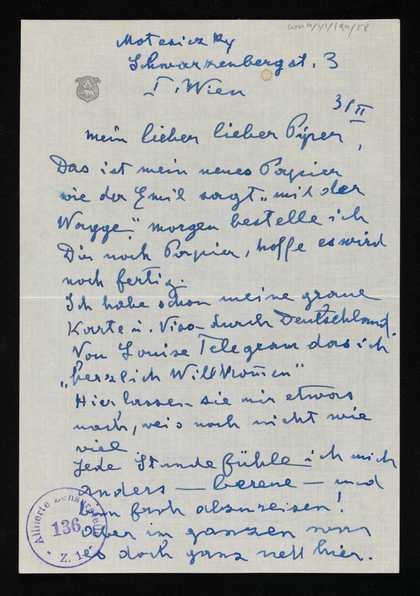 Motesiczky
Schwarzenbergst. 3
I. Wien
3/II
mein lieber lieber Piper,
Das ist mein neues Papier
wie der Emil sagt „mit der
Wappe" morgen bestelle ich
Dir noch Papier, hoffe es wird
noch fertig
Ich habe schon meine graue
Karte u. Visa durch Deutschland.
Von Louise Telegram das ich
„herzlich Willkom̄en"
Hier lassen sie mir etwas
nach, weis noch nicht wie
viel
Jede Stunde fühle ich mich
anders — bereue — und
bin froh abzureisen!
aber im ganzen
es doch ganz nett hier.
Alliierte Zensurstelle
136
Z. 1